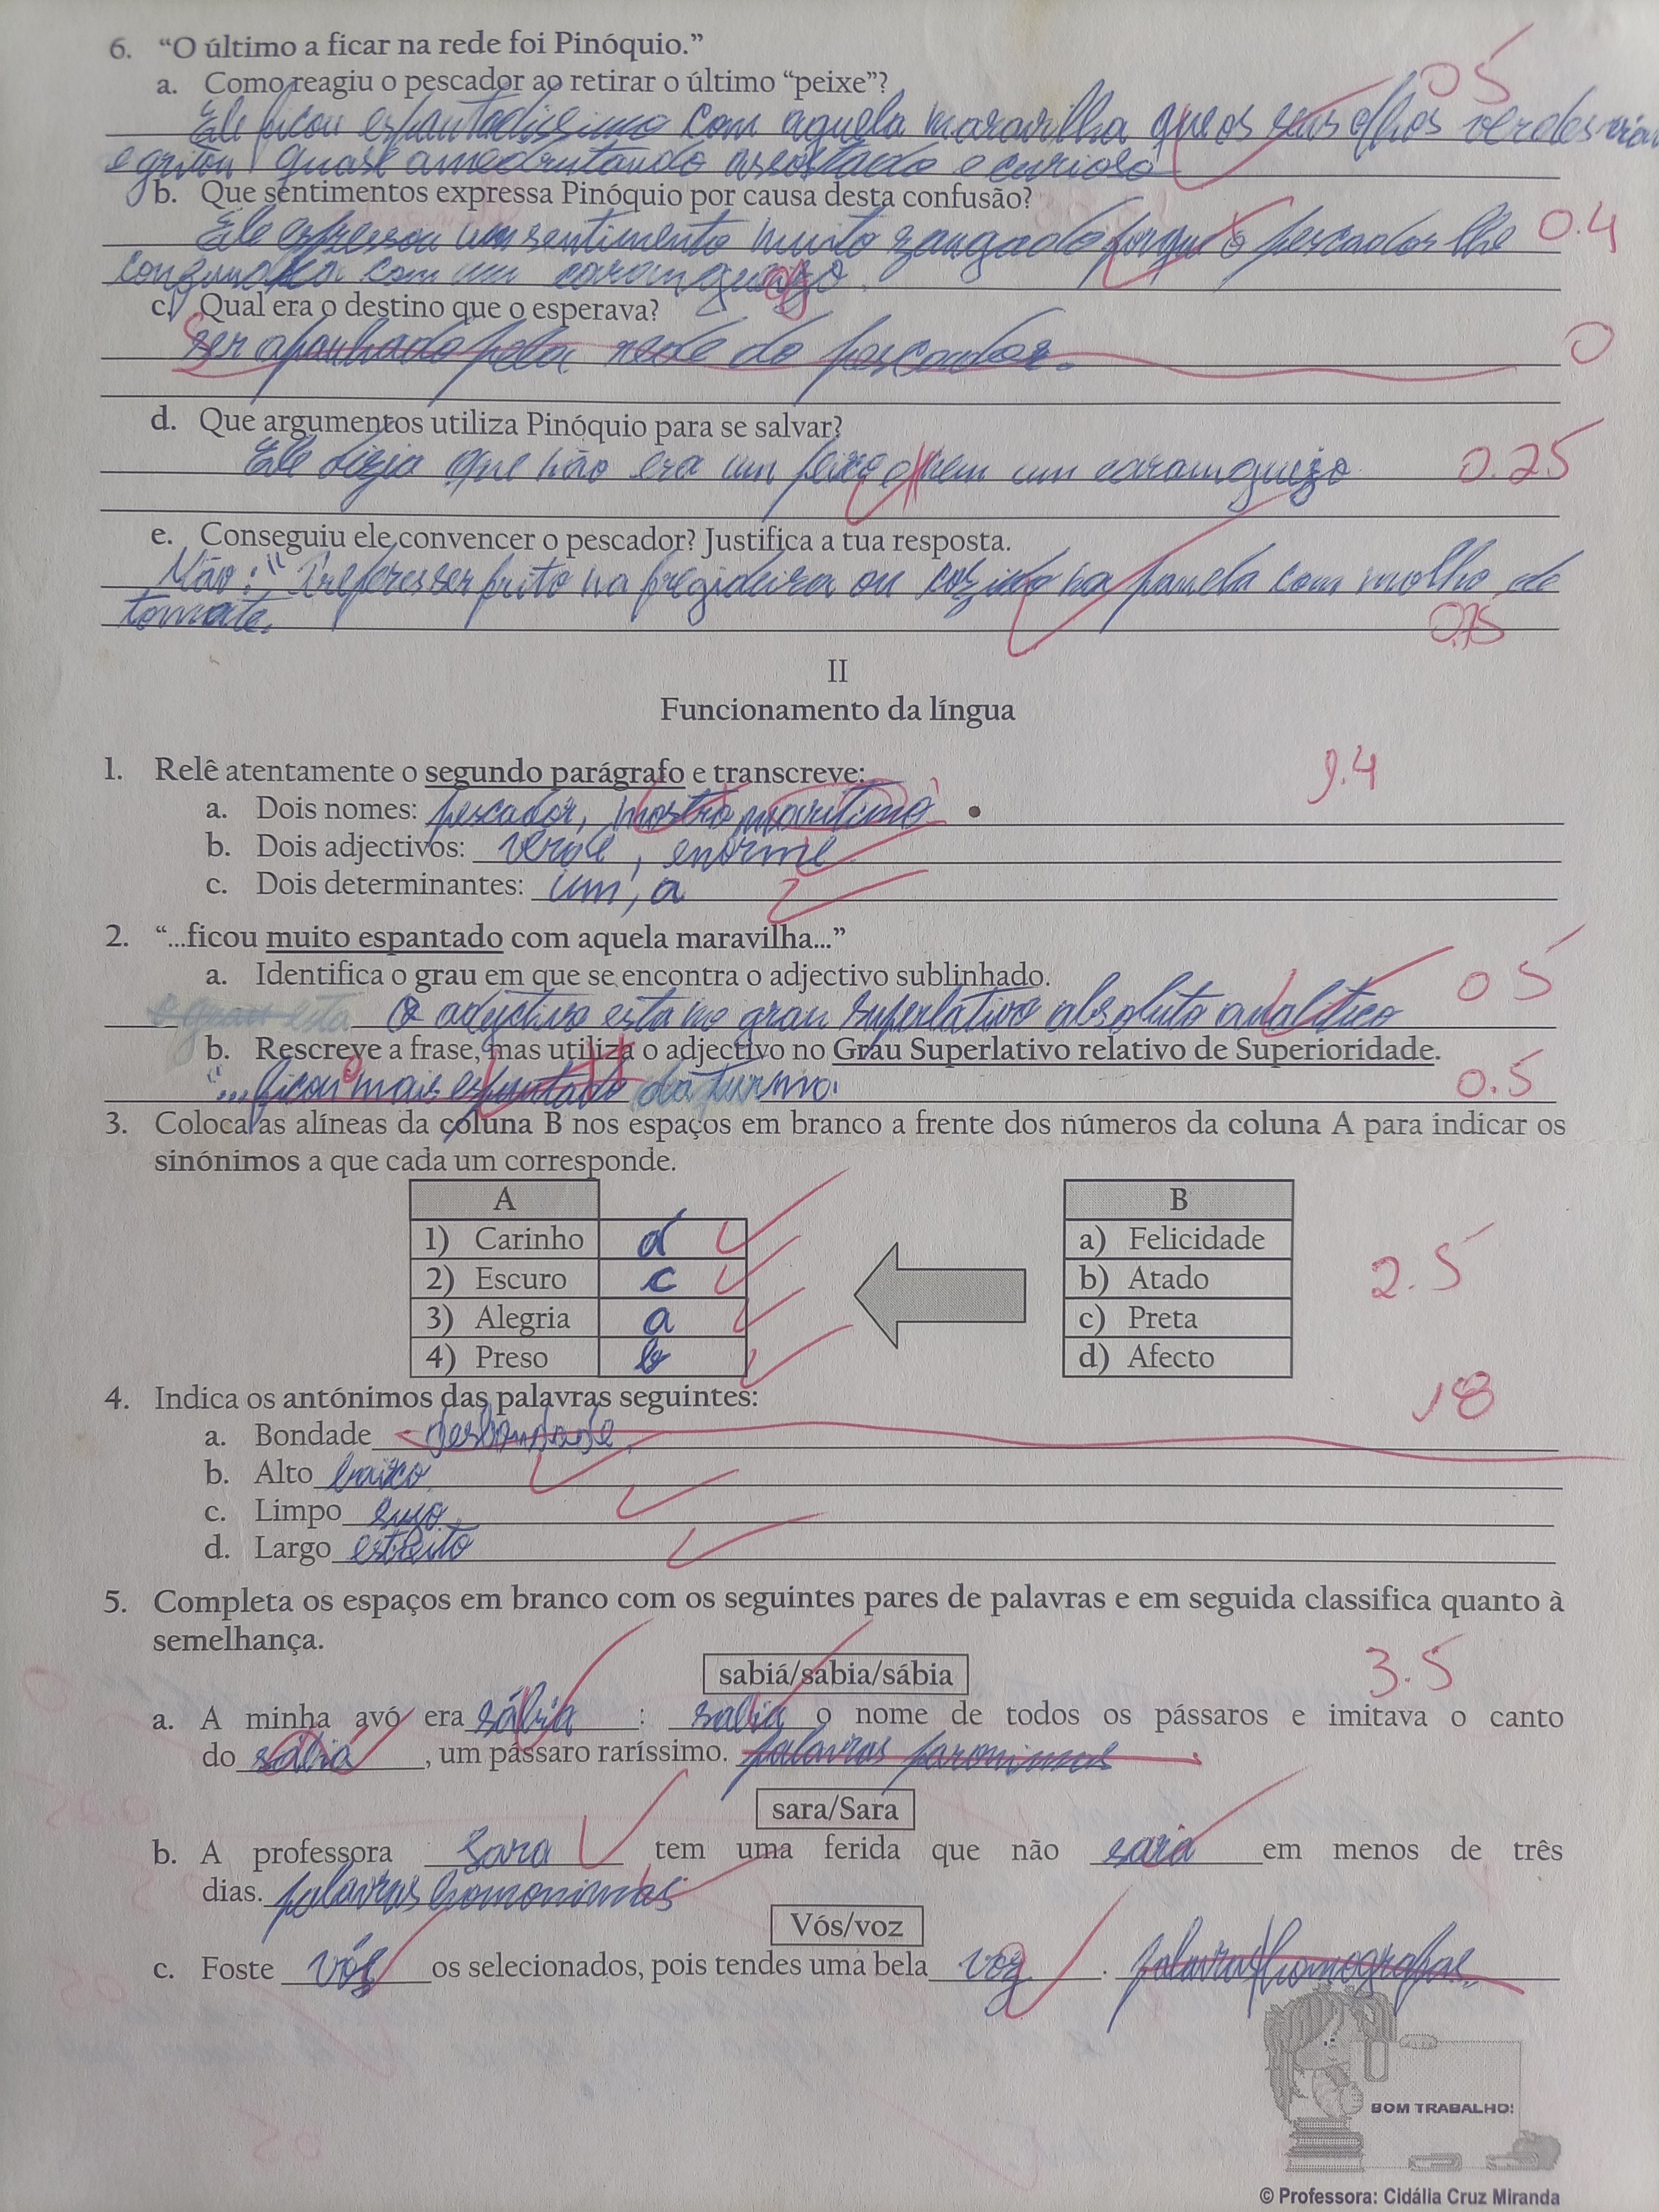 6. “O último a ficar na rede foi Pinóquio.”
a. Como reagiu o pescador ao retirar o último “peixe”? 05
Ele ficou espantadíssimo com aquela maravilha que os seus olhos verdes viam
e gritou quase amedrontando assostado e curioso
b. Que sentimentos expressa Pinóquio por causa desta confusão?
Ele expressou um sentimento muito zangado porque o pescador lhe 0.4
confundia com um caranguejo.
c. Qual era o destino que o esperava?
Ser apanhado pela rede do pescador. 0
d. Que argumentos utiliza Pinóquio para se salvar?
Ele dizia que não era um peixe nem um caranguejo 0.25
e. Conseguiu ele convencer o pescador? Justifica a tua resposta.
Não: " Preferes ser frito na fregideira ou cozido na panela com molho de
tomate. 0.75
II
Funcionamento da língua
1. Relê atentamente o segundo parágrafo e transcreve: 9.4
a. Dois nomes: pescador, mostro marítimo
b. Dois adjectivos: verde, enorme
c. Dois determinantes: um, a
2. “...ficou muito espantado com aquela maravilha...”
a. Identifica o grau em que se encontra o adjectivo sublinhado. 05
O adjectivo esta no grau superlativo absoluto analítico
b. Rescreve a frase, mas utiliza o adjectivo no Grau Superlativo relativo de Superioridade.
"...ficou o mais espantado da turma. 0.5
3. Coloca as alíneas da coluna B nos espaços em branco a frente dos números da coluna A para indicar os
sinónimos a que cada um corresponde.
A B
1) Carinho d a) Felicidade
2) Escuro c b) Atado 2.5
3) Alegria a c) Preta
4) Preso b d) Afecto
4. Indica os antónimos das palavras seguintes: 18
a. Bondade desbondade
b. Alto baixo
c. Limpo sujo
d. Largo estreito
5. Completa os espaços em branco com os seguintes pares de palavras e em seguida classifica quanto à
semelhança.
sabiá/sabia/sábia 3.5
a. A minha avó era sábia : sabia o nome de todos os pássaros e imitava o canto
do sábiá , um pássaro raríssimo. palavras paronimas
sara/Sara
b. A professora Sara tem uma ferida que não sara em menos de três
dias. palavras homonimas
Vós/voz
c. Foste vós os selecionados, pois tendes uma bela voz . palavras homografas.
BOM TRABALHO!
© Professora: Cidália Cruz Miranda